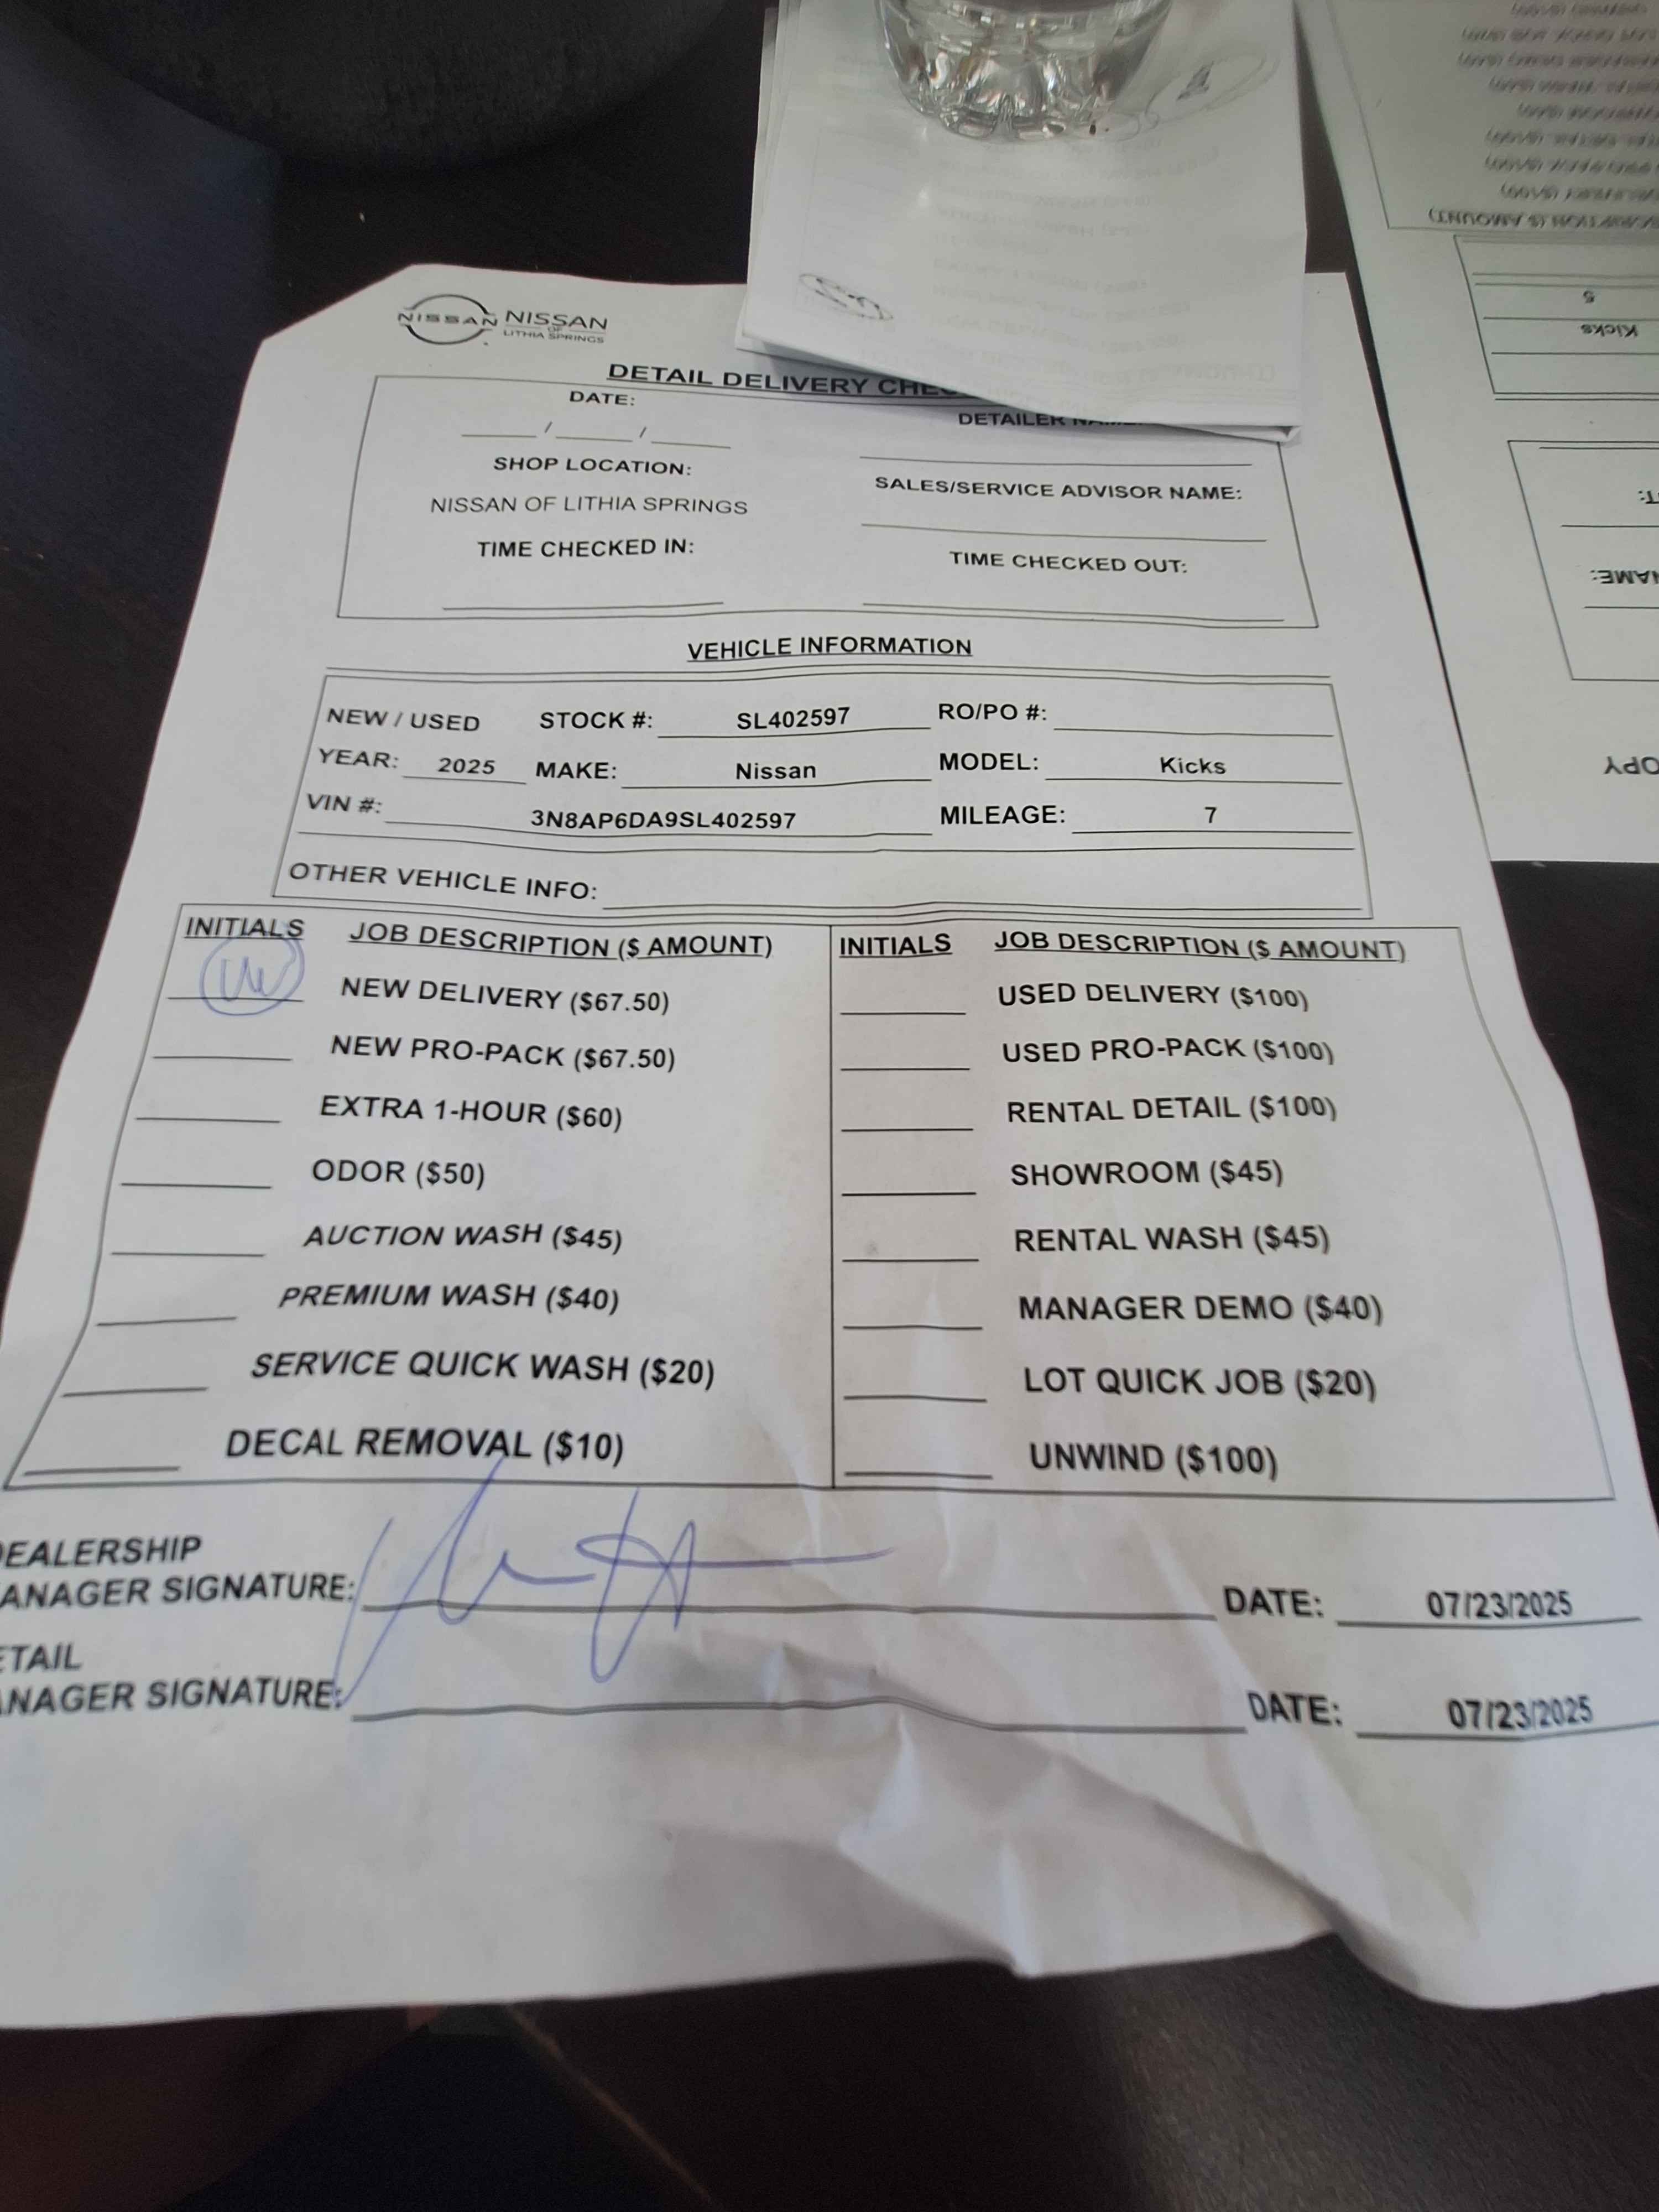 NISSAN NISSAN
OF
LITHIA SPRINGS
DETAIL DELIVERY
DATE:
DETAILER
/ /
SHOP LOCATION:
SALES/SERVICE ADVISOR NAME:
NISSAN OF LITHIA SPRINGS
TIME CHECKED IN:
TIME CHECKED OUT:
VEHICLE INFORMATION
NEW / USED STOCK #: SL402597 RO/PO #:
YEAR: 2025 MAKE: Nissan MODEL: Kicks
VIN #: 3N8AP6DA9SL402597 MILEAGE: 7
OTHER VEHICLE INFO:
INITIALS JOB DESCRIPTION ($ AMOUNT)
NEW DELIVERY ($67.50)
NEW PRO-PACK ($67.50)
EXTRA 1-HOUR ($60)
ODOR ($50)
AUCTION WASH ($45)
PREMIUM WASH ($40)
SERVICE QUICK WASH ($20)
DECAL REMOVAL ($10)
INITIALS JOB DESCRIPTION ($ AMOUNT)
USED DELIVERY ($100)
USED PRO-PACK ($100)
RENTAL DETAIL ($100)
SHOWROOM ($45)
RENTAL WASH ($45)
MANAGER DEMO ($40)
LOT QUICK JOB ($20)
UNWIND ($100)
DEALERSHIP
ANAGER SIGNATURE: DATE: 07/23/2025
ETAIL
ANAGER SIGNATURE: DATE: 07/23/2025
CRIPTION ($ AMOUNT)
5
Kicks
NAME:
OPY